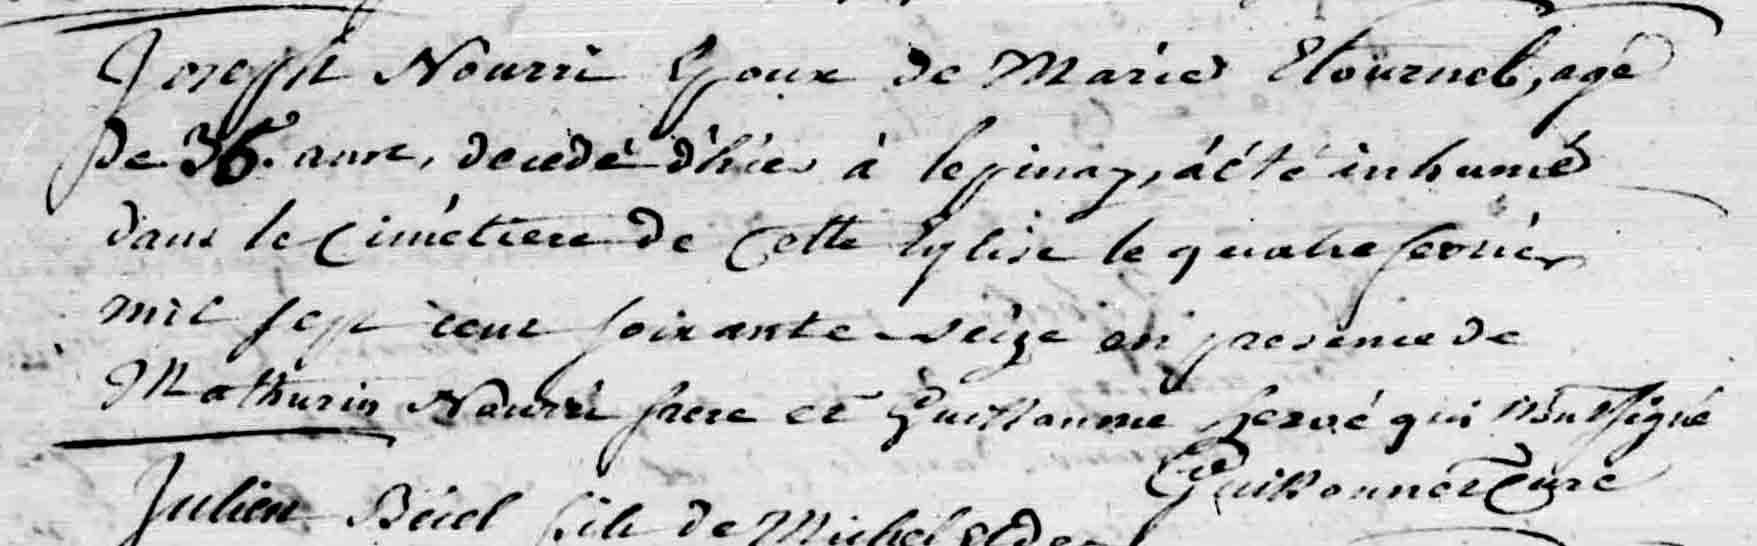 Joseph Nourri Epoux de Marie Etournel, agé
de 36. ans, decedé d'hier à lepinay, a été inhumé
dans le Cimétiere de Cette Eglise le quatre fevrier
mil sept cent soixante seize en presence de
Mathurin Nourri frere et Guillaume hervé qui n'ont signé
Cure
Julien fils de Michel